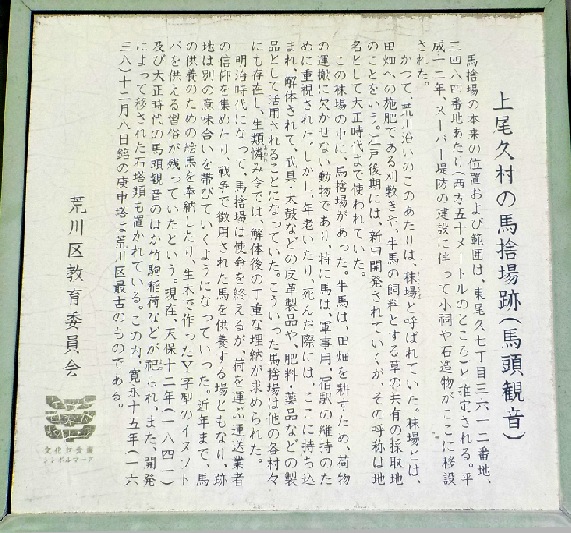 上尾久村の馬捨場跡(馬頭観音)
馬捨場の本来の位置および範囲は、東尾久七丁目三六一二番地、
三四八四番地あたり(西方五十メートルのところ)と推定される。平
成十二年、スーパー堤防の建設に伴って小祠や石造物がここに移設
された。
かつて、荒川沿いのこのあたりは、秣場と呼ばれていた。秣場とは、
田畑への施肥である刈敷きや、牛馬の飼料とする草の共有の採取地
のことをいう。江戸後期には、新田開発されていくが、その呼称は地
名として大正時代まで使われていた。
この秣場の中に、馬捨場があった。牛馬は、田畑を耕すため、荷物
の運搬に欠かせない動物であり、特に馬は、軍事用、宿駅の維持のた
めに重視された。しかし、年老いたり、死んだ際には、ここに持ち込
まれ、解体されて、武具・太鼓などの皮革製品や、肥料・薬品などの製
品として活用されることになっていた。こういった馬捨場は他の各村々
にも存在し、生類憐み令では、解体後の丁重な埋納が求められた。
明治時代になって、馬捨場は使命を終えるが、荷を運ぶ運送業者
の信仰を集めたり、戦争で徴用された馬を供養する場ともなり、跡
地は別の意味合いを帯びていくようになっていった。近年まで、馬
の供養のための絵馬を奉納したり、生木で作ったY字型のイヌソト
バを供える習俗が残っていたという。現在、天保十二年(一八四一)
及び大正時代の馬頭観音のほか竹駒稲荷などが祀られ、また、開発
によって移された石塔類も置かれている。この内、寛永十五年(一六
三八)十二月八日銘の庚申塔は荒川区最古のものである。
荒川区教育委員会
文化財愛護
シンボルマーク